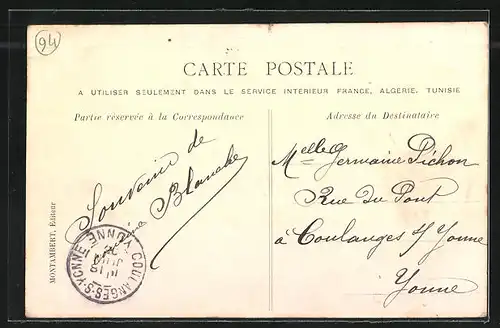 94
CARTE POSTALE
A UTILISER SEULEMENT DANS LE SERVICE INTÉRIEUR FRANCE, ALGERIE, TUNISIE
Partie réservée à la Correspondance
Adresse du Destinataire
Souvenir de
Blanche
Melle Germaine Pichon
Rue du Pont
à Coulanges s/ Yonne
Yonne
MONTAMBERT, Editeur
COULANGES-S-YONNE YONNE